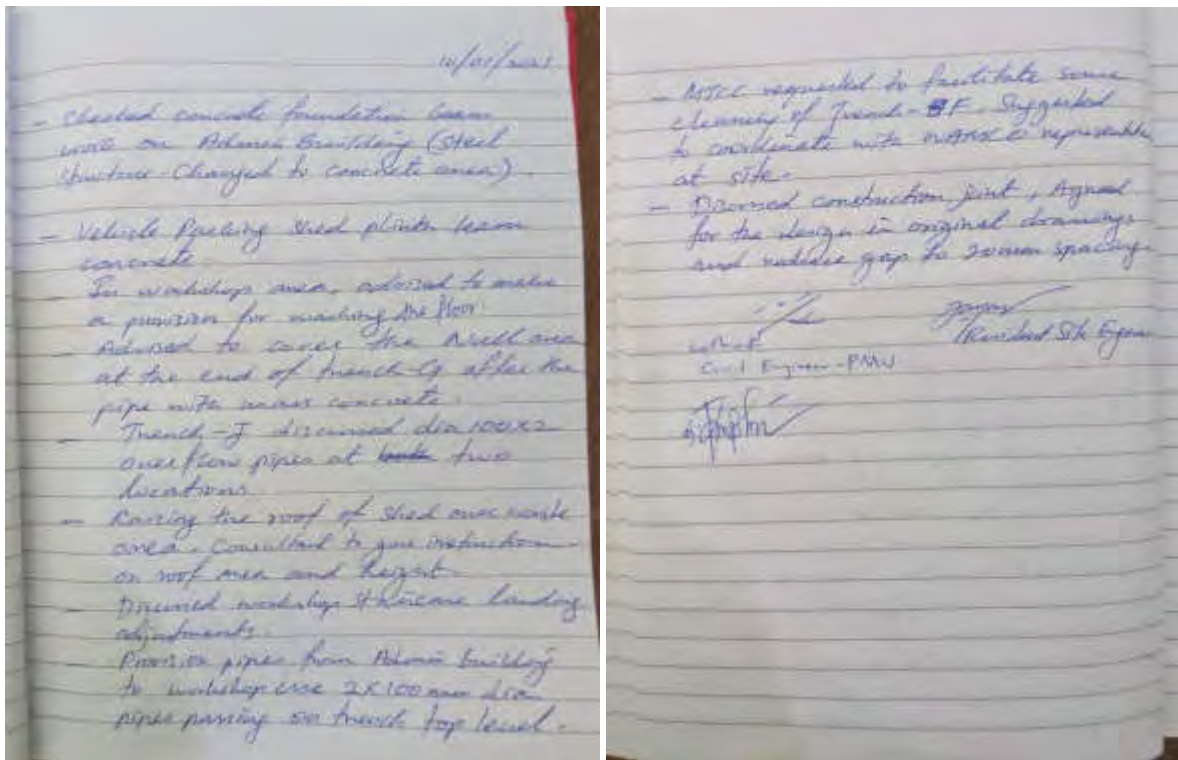 10/01/2021
- Checked concrete foundation beam
work on Admin Building (Steel
structure - Changed to concrete area).
- Vehicle Parking Shed plinth beam
concrete.
- In workshop area, advised to make
a provision for washing the floor.
- Advised to cover the area
at the end of trench-G after the
pipe with mass concrete.
- Trench-J discussed dia 100x2
overflow pipes at two
locations.
- Raising the roof of shed over waste
area. Consultant to give instruction
on roof area and height.
- Discussed workshop staircase landing
adjustments.
- Provision pipes from Admin building
to workshop use 2x100mm dia
pipes passing on trench top level.
- MTCC requested to facilitate some
cleaning of Trench-F. Suggested
to coordinate with representative
at site.
- Discussed construction joint, Agreed
for the design in original drawings
and reduce gap to 20mm spacing.
Resident Site Engineer
Civil Engineer - PMU